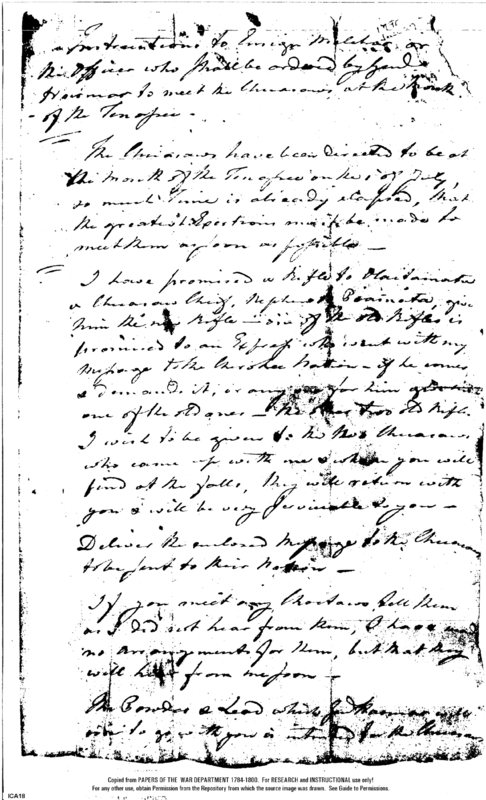 Instructions to Ensign Melcher or
the Officer who shall be ordered by Genl
Harmar to meet the Chicasaws, at the Mouth
of the Tenassee -
The Chicasaws have been directed to be at
the Mouth of the Tenassee on the 1 of July,
so much Time is already elapsed, that
the greatest Exertions must be made to
meet them as soon as possible -
I have promised a Rifle to
a Chicasaw Chief, Nephew of give
him the new Rifle - one of the old Rifles is
promised to an Express who went with my
Message to the Cherokee Nation - if he comes
& demands it, or any one for him
one of the old ones - the other two old Rifles
I wish to be given to the two Chicasaws
who came up with me & whom you will
find at the falls, they will return with
you & will be very serviceable to you -
Deliver the enclosed Message to the Chicasaws
to be sent to their Nation -
If you meet any Choctaws, tell them
as I did not hear from them, I have
no arrangements for them, but that they
will hear from me soon -
The Powder & Lead which Harmar will
to go with you is intended for the Chicasaws
Copied from PAPERS OF THE WAR DEPARTMENT 1784-1800. For RESEARCH and INSTRUCTIONAL use only!
For any other use, obtain Permission from the Repository from which the source image was drawn. See Guide to Permissions.
ICA18